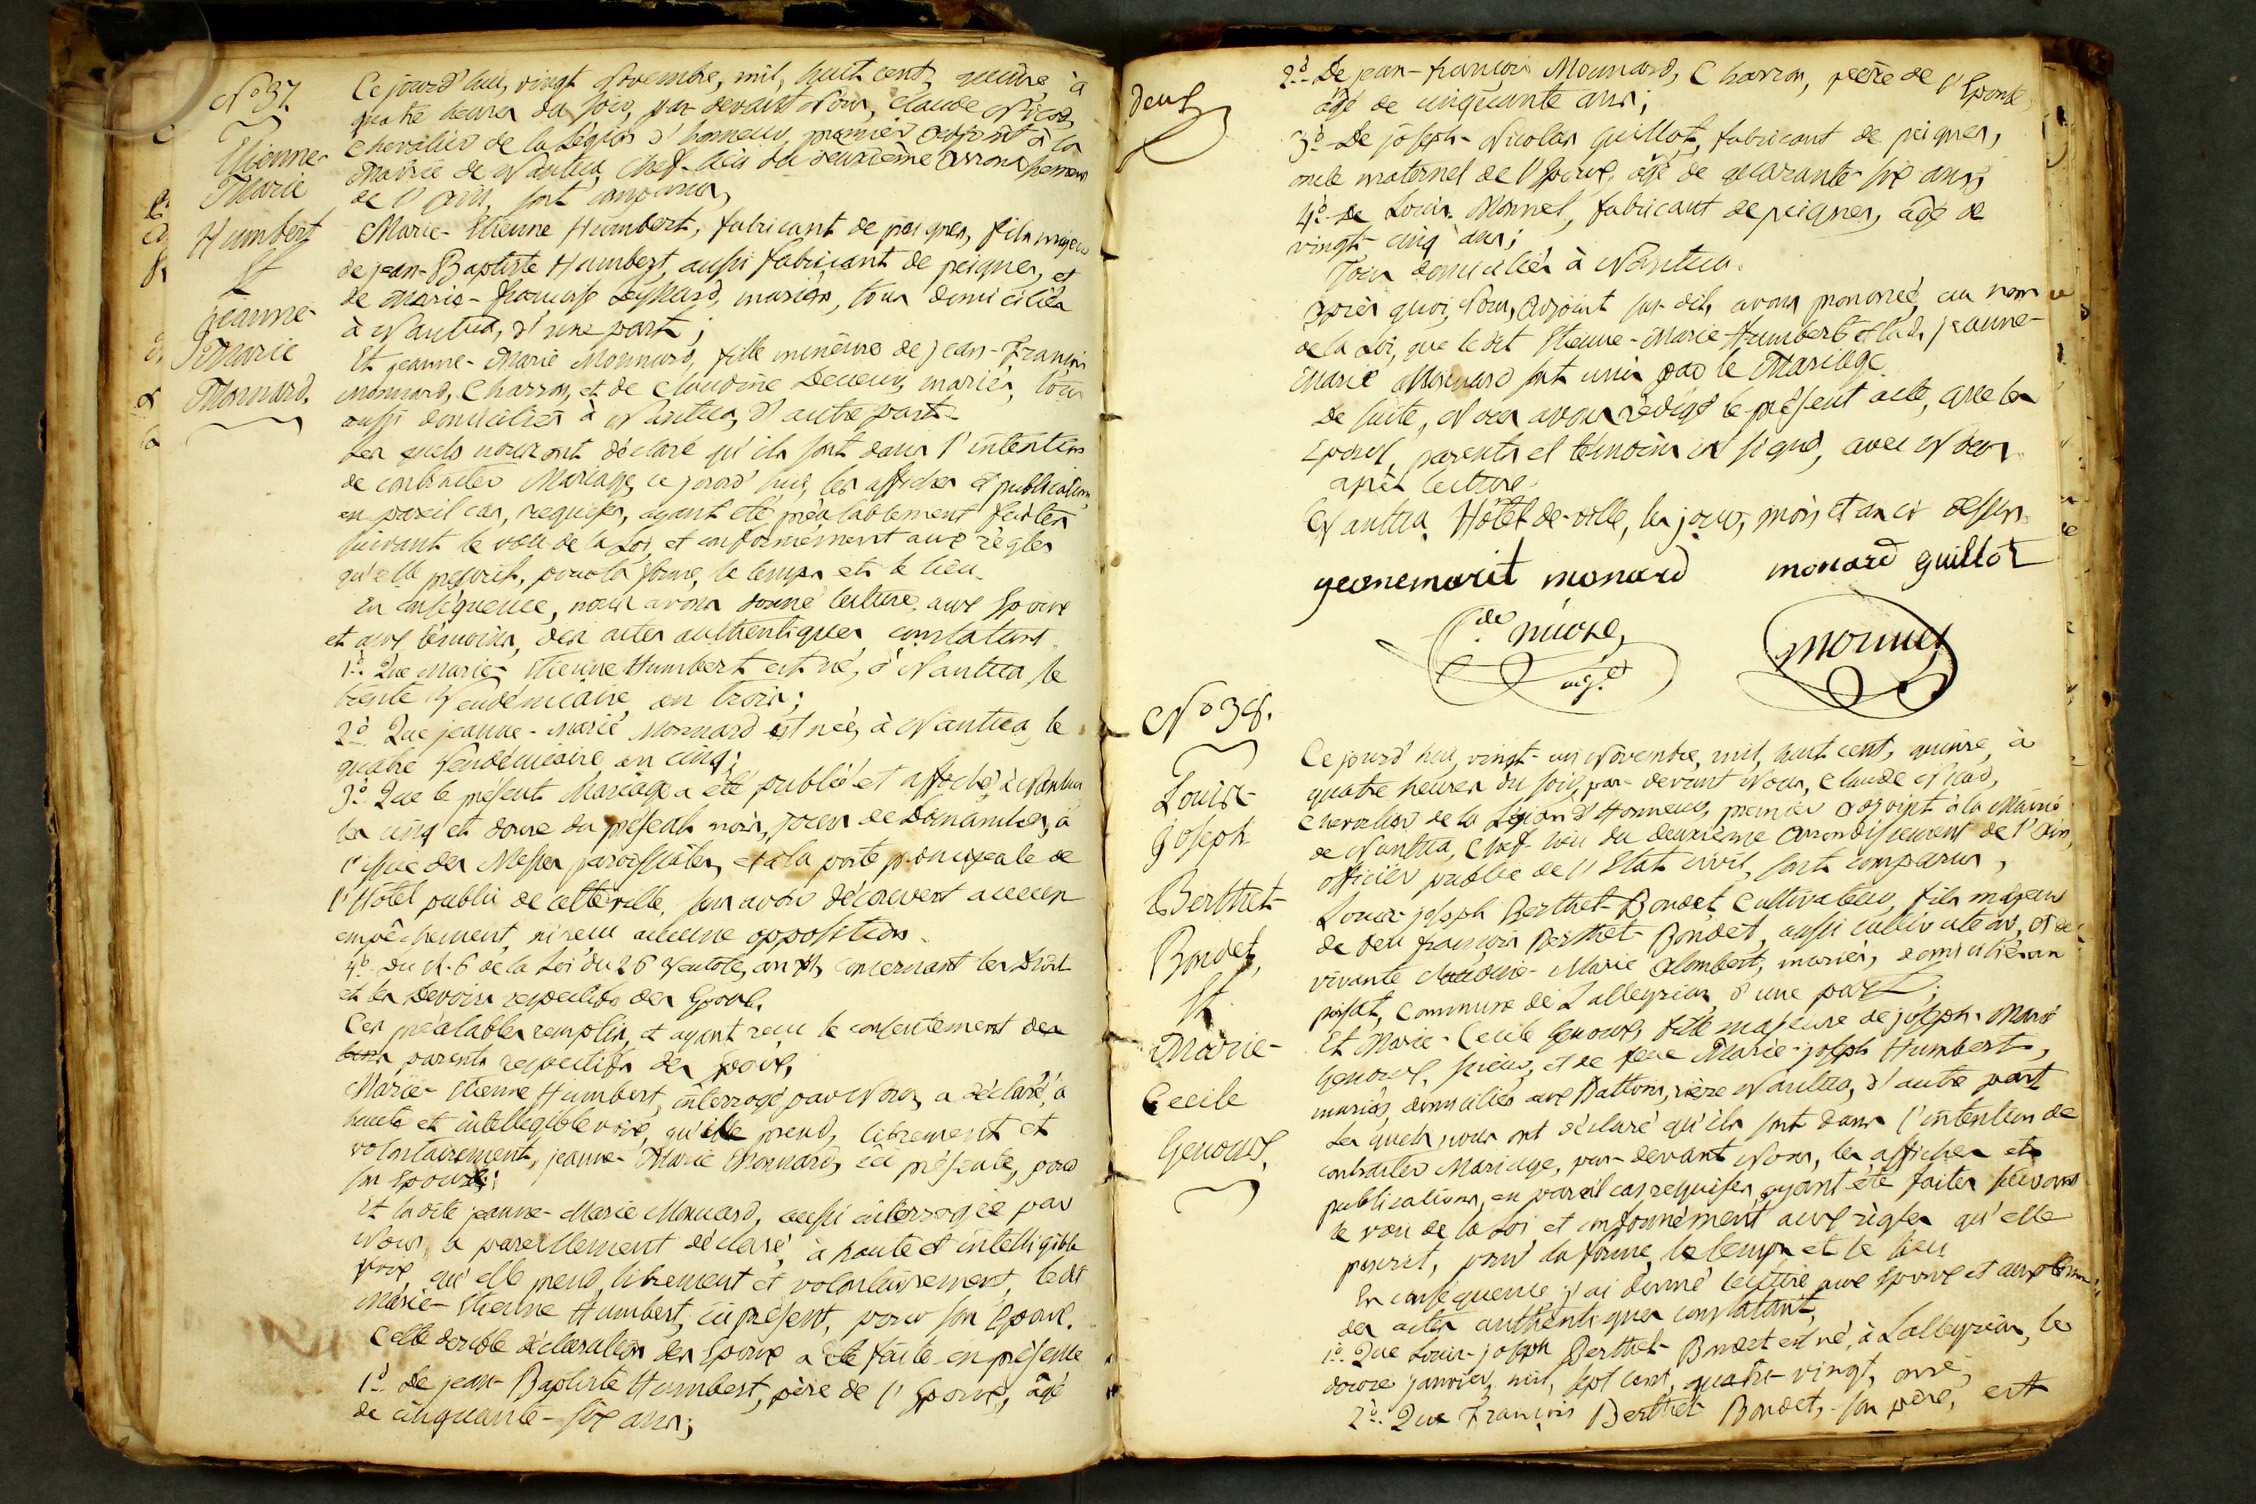 N° 37
Etienne-
Marie
Humbert
Et
jeanne-
Marie
Monnard.
Ce jourd'hui, vingt Novembre, mil, huit cent, quinze, à
quatre heures du soir, par devant Nous, Claude Nicod,
Chevalier de la Légion d'honneur, premier adjoint à la
Mairie de Nantua, Chef-lieu du deuxième arrondissement
de l'Ain, sont comparus,
Marie-Etienne Humbert, fabricant de peignes, fils majeur
de jean-Baptiste Humbert, aussi fabricant de peignes, et
de Marie-françoise, mariés, tous domiciliés
à Nantua, d'une part;
Et jeanne-Marie Monnard, fille mineure de jean-François
Monnard, Charron, et de Claudine, mariés, tous
aussi domiciliés à Nantua, d'autre part.
Les quels nous ont déclaré qu'ils sont dans l'intention
de contracter Mariage, ce jourd'hui, les affiches et publications,
en pareil cas, requises, ayant été préalablement faites
suivant le vœu de la Loi, et conformément aux règles
qu'elle prescrit, pour la forme, le temps et le lieu.
En conséquence, nous avons donné lecture, aux Epoux
et aux témoins, des actes authentiques constatans.
1°. Que Marie-Etienne Humbert est né, à Nantua, le
trente Vendémiaire, an trois;
2°. Que jeanne-Marie Monnard est née, à Nantua, le
quatre Vendémiaire an cinq;
3°. Que le présent Mariage a été publié et affiché, à Nantua
les cinq et douze du présent mois, jours de Dimanches, à
l'issue des Messes paroissiales, et à la porte principale de
l'Hôtel public de cette ville, sans avoir découvert aucun
empêchement, ni reçu aucune opposition.
4°. Du ch. 6 de la Loi du 26 Ventôse, an XI, concernant les Droits
et les Devoirs respectifs des Epoux.
Ces préalables remplis, et ayant reçu le consentement des
parents respectifs des Epoux,
Marie-Etienne Humbert, interrogé par Nous, a déclaré, à
haute et intelligible voix, qu'elle prend, librement et
volontairement, jeanne-Marie Monnard, ici présente, pour
son Epouse;
Et ladite jeanne-Marie Monnard, aussi interrogée par
Nous, a pareillement déclaré, à haute et intelligible
voix, qu'elle prend, librement et volontairement, ledit
Marie-Etienne Humbert, ici présent, pour son Epoux.
Cette double déclaration des Epoux a été faite en présence
1°. De jean-Baptiste Humbert, père de l'Epoux, âgé
de cinquante-six ans;
2°. De jean-françois Monnard, Charron, père de l'Epouse
âgé de cinquante ans;
3°. De joseph-Nicolas Guillot, fabricant de peignes,
oncle maternel de l'Epoux, âgé de quarante-six ans;
4°. De Louis Monnet, fabricant de peignes, âgé de
vingt-cinq ans;
Tous domiciliés à Nantua.
Après quoi, Nous, Adjoint sus dit, avons prononcé, au nom
de la Loi, que ledit Etienne-Marie Humbert et lad. jeanne-
Marie Monnard sont unis par le Mariage.
De suite, Nous avons rédigé le présent acte, que les
Epoux, parents et témoins ont signé, avec Nous
après lecture.
Nantua, Hôtel-de-ville, les jour, mois et an ci dessus.
jeannemarit monard
monard guillot
monnet
N° 38.
Louis-
joseph
Berthet-
Bondet,
Et
Marie-
Cecile
Genoux.
Ce jourd'hui, vingt-un Novembre, mil, huit cent, quinze, à
quatre heures du soir, par-devant Nous, Claude Nicod,
Chevalier de la Légion d'Honneur, premier adjoint à la Mairie
de Nantua, chef-lieu du deuxième arrondissement de l'Ain,
officier public de l'Etat civil, sont comparus,
Louis-joseph Berthet-Bondet Cultivateur, fils majeur
de feu françois Berthet-Bondet, aussi cultivateur, et de
vivante Claudine-Marie Alombert, mariés, domiciliés
Commune de Lalleyriat, d'une part;
Et Marie-Cecile Genoux, fille majeure de joseph-Marie
Genoux, et de feue Marie-joseph Humbert,
mariés, domiciliés aux Battoirs, rière Nantua, d'autre part
Les quels nous ont déclaré qu'ils sont dans l'intention de
contracter Mariage, par-devant Nous, les affiches et
publications, en pareil cas requises, ayant été faites suivant
le vœu de la Loi et conformément aux règles qu'elle
prescrit, pour la forme, le temps et le lieu
En conséquence j'ai donné lecture aux Epoux et aux témoins
des actes authentiques constatant,
1°. Que Louis-joseph Berthet-Bondet est né, à Lalleyriat, le
douze janvier, mil, sept cent, quatre-vingt, onze;
2°. Que François Berthet Bondet, son père, est